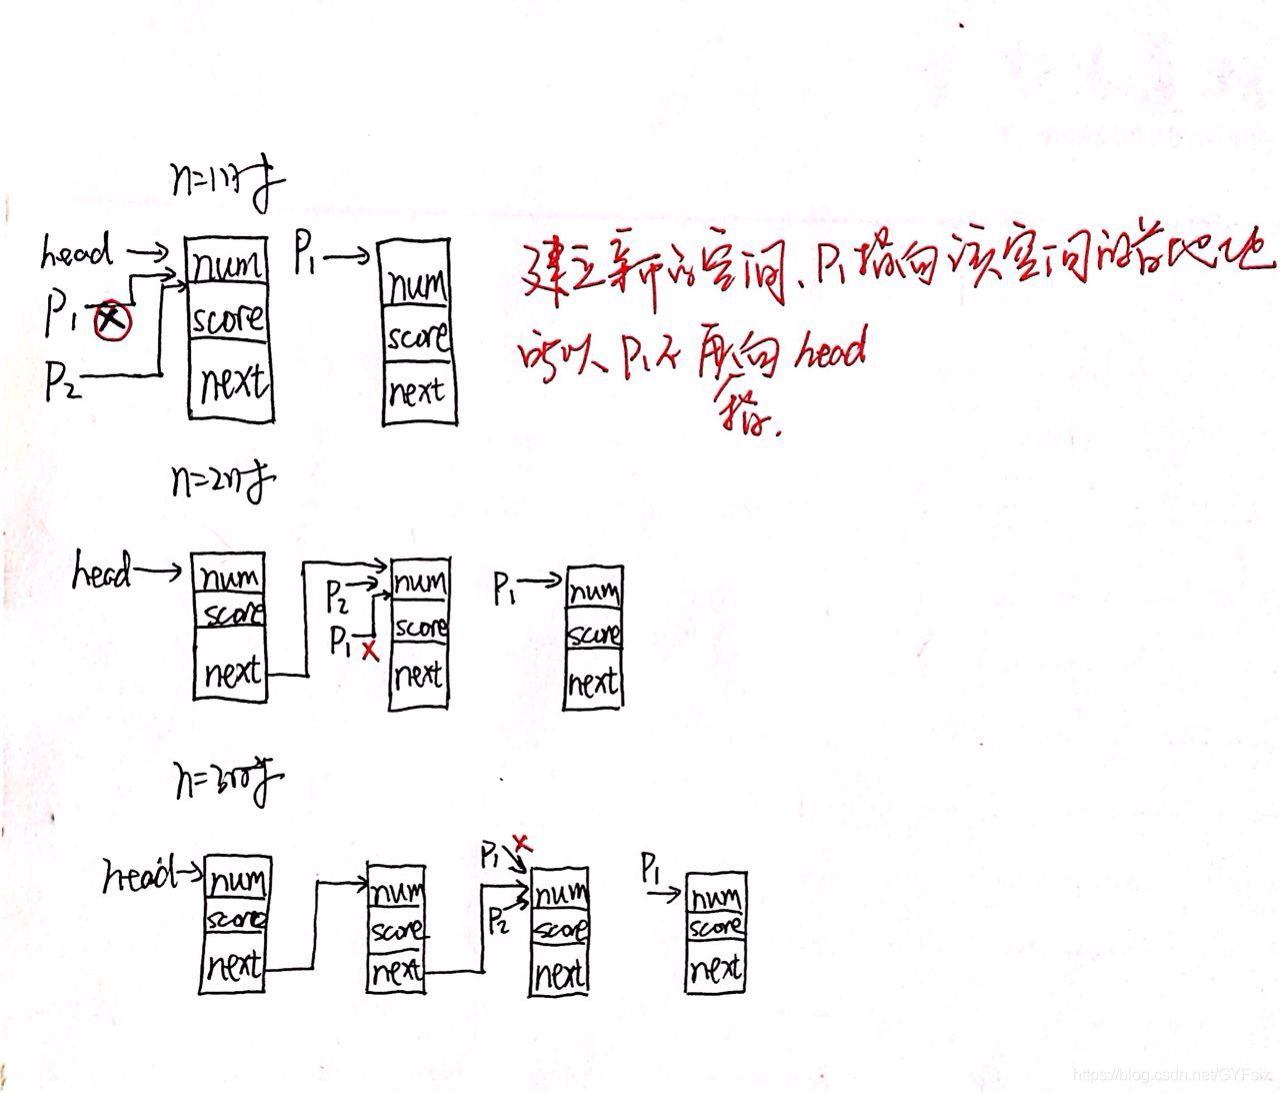 n=1时
head
P1
P2
num
score
next
P1
num
score
next
建立新的空间、P1指向该空间的首地址
所以P1不再指向head
n=2时
head
num
score
next
P2
P1
num
score
next
P1
num
score
next
n=3时
head
num
score
next
num
score
next
P1
P2
num
score
next
P1
num
score
next
https://blog.csdn.net/GYFsix